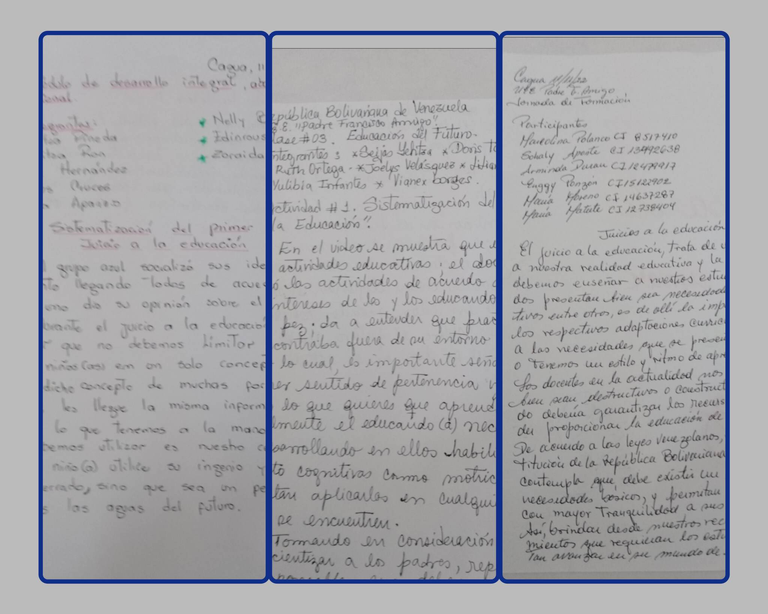 Cagua, 11
de desarrollo integral, abo
Nelly
Pineda
Edinrous
Roa
Zoraida
Hernández
Aparco
Sistematización del primer
Juicio a la educación
grupo azul socializó sus ide
llegando Todos de acue
uno dio su opinión sobre el
el juicio a la educació
que no debemos Limitar
niños(as) em on solo concep
dicho concepto de muchas
les llegue la misma inform
lo que tenemos a la mano
utilizar es nuestro
niño(a) utilice su ingenio y
sino que sea on
las aguas del futuro.
epública Bolivariana de Venezuela
"Padre Francisco Amigo"
ase #03. Educación del Futuro.
ntegrantes: * Seijas * Doris
Ruth Ortega. * Joelys Velásquez *
Infantes * Vianex borges.
ctividad #1. Sistematización del
la Educación".
En el video se muestra que e
actividades educativas; el doc
las actividades de acuerdo
ntereses de los y los educando
pez. Da a entender que
contraba fuera de su entorno
lo cual, es importante seña
er sentido de pertenencia
lo que quieres que aprend
lmente el educando(a) nec
sarrollando en ellos habili
to cognitivas como motric
tan aplicarlos en cualqui
se encuentren.
Tomando en consideración
cientizar a los padres, rep
Cagua 11/11/22
Padre F. Amigo
Jornada de Formación
Participantes
Marcelina Polanco CI 8517410
Aponte CI 13492638
Arminda Duran CI 12479417
Ponzón CI 15122902
María Moreno CI 14637287
María Matute CI 12738404
Juicios a la educación
El juicio a la educación, trata de
a nuestra realidad educativa y la
debemos enseñar a nuestros estu
dos presentan bien sea necesidade
tivas entre otros, es de allí la imp
los respectivos adaptaciones curricu
a las necesidades que se presen
o Tenemos un estilo y ritmo de apr
Los docentes en la actualidad nos
bien sean destructivos o construct
do debería garantizar los recurs
proporcionar la educación de
De acuerdo a las leyes venezolanas,
titución de la República Bolivariana
contempla que debe existir un
necesidades básicas, y permitan
con mayor Tranquilidad a sus
Así, brindar desde nuestros rec
mientos que requieran los estu
Tan avanzar en su mundo de